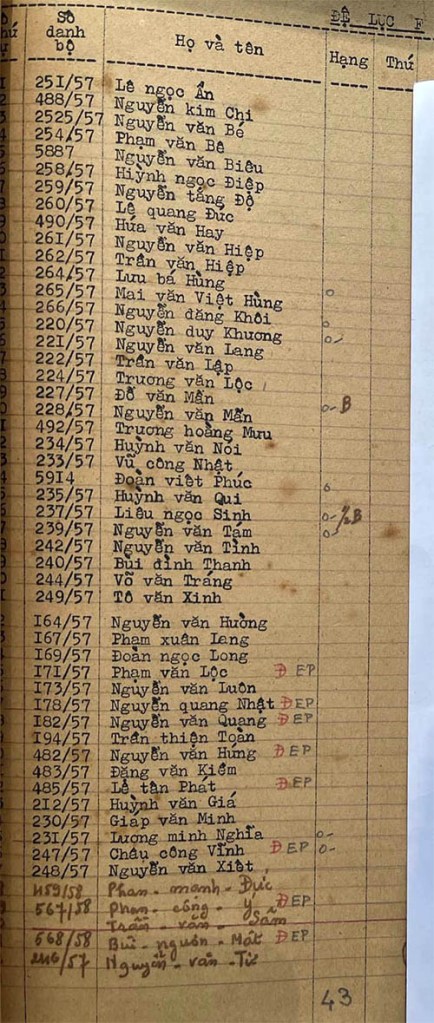 ĐỆ LỤC F
Số danh bộ Họ và tên Hạng Thứ
251/57 Lê ngọc Ẩn
488/57 Nguyễn kim Chi
2525/57 Nguyễn văn Bé
254/57 Phạm văn Bê
5887 Nguyễn văn Biêu
258/57 Hiỳnh ngọc Điệp
259/57 Nguyễn tăng Độ
260/57 Lê quang Đức
490/57 Hứa văn Hay
261/57 Nguyễn văn Hiệp
262/57 Trần văn Hiệp
264/57 Lưu bá Hùng
265/57 Mai văn Việt Hùng o
266/57 Nguyễn đăng Khôi
220/57 Nguyễn duy Khương o
221/57 Nguyễn văn Lang o-
222/57 Trần văn Lập
224/57 Trương văn Lộc
227/57 Đỗ văn Mẫn
228/57 Nguyễn văn Mẫn o- B
492/57 Trương hoàng Mưu
234/57 Huỳnh văn Nói
233/57 Vũ công Nhật
5914 Đoàn viết Phúc
235/57 Huỳnh văn Qui o
237/57 Liêu ngọc Sinh o- ½B
239/57 Nguyễn văn Tám o-
242/57 Nguyễn văn Tình
240/57 Bùi đình Thanh
244/57 Võ văn Tráng
249/57 Tô văn Xinh
164/57 Nguyễn văn Hường
167/57 Phạm xuân Lang
169/57 Đoàn ngọc Long
171/57 Phạm văn Lộc Đ EP
173/57 Nguyễn văn Luôn
178/57 Nguyễn quang Nhật Đ EP
182/57 Nguyễn văn Quang Đ EP
194/57 Trần thiện Toàn
482/57 Nguyễn văn Hứng Đ EP
483/57 Đặng văn Kiểm
485/57 Lê tấn Phát Đ EP
212/57 Huỳnh văn Giá
230/57 Giáp văn Minh
231/57 Lương minh Nghĩa o-
247/57 Châu công Vĩnh Đ EP o-
248/57 Nguyễn văn Xiêt
459/58 Phan-manh-Đức
567/58 Phan-công-Y Đ EP
Trần-văn-Sấm
568/58 Bùi-nguơn-Mát Đ EP
/57 Nguyễn-văn-Từ
43